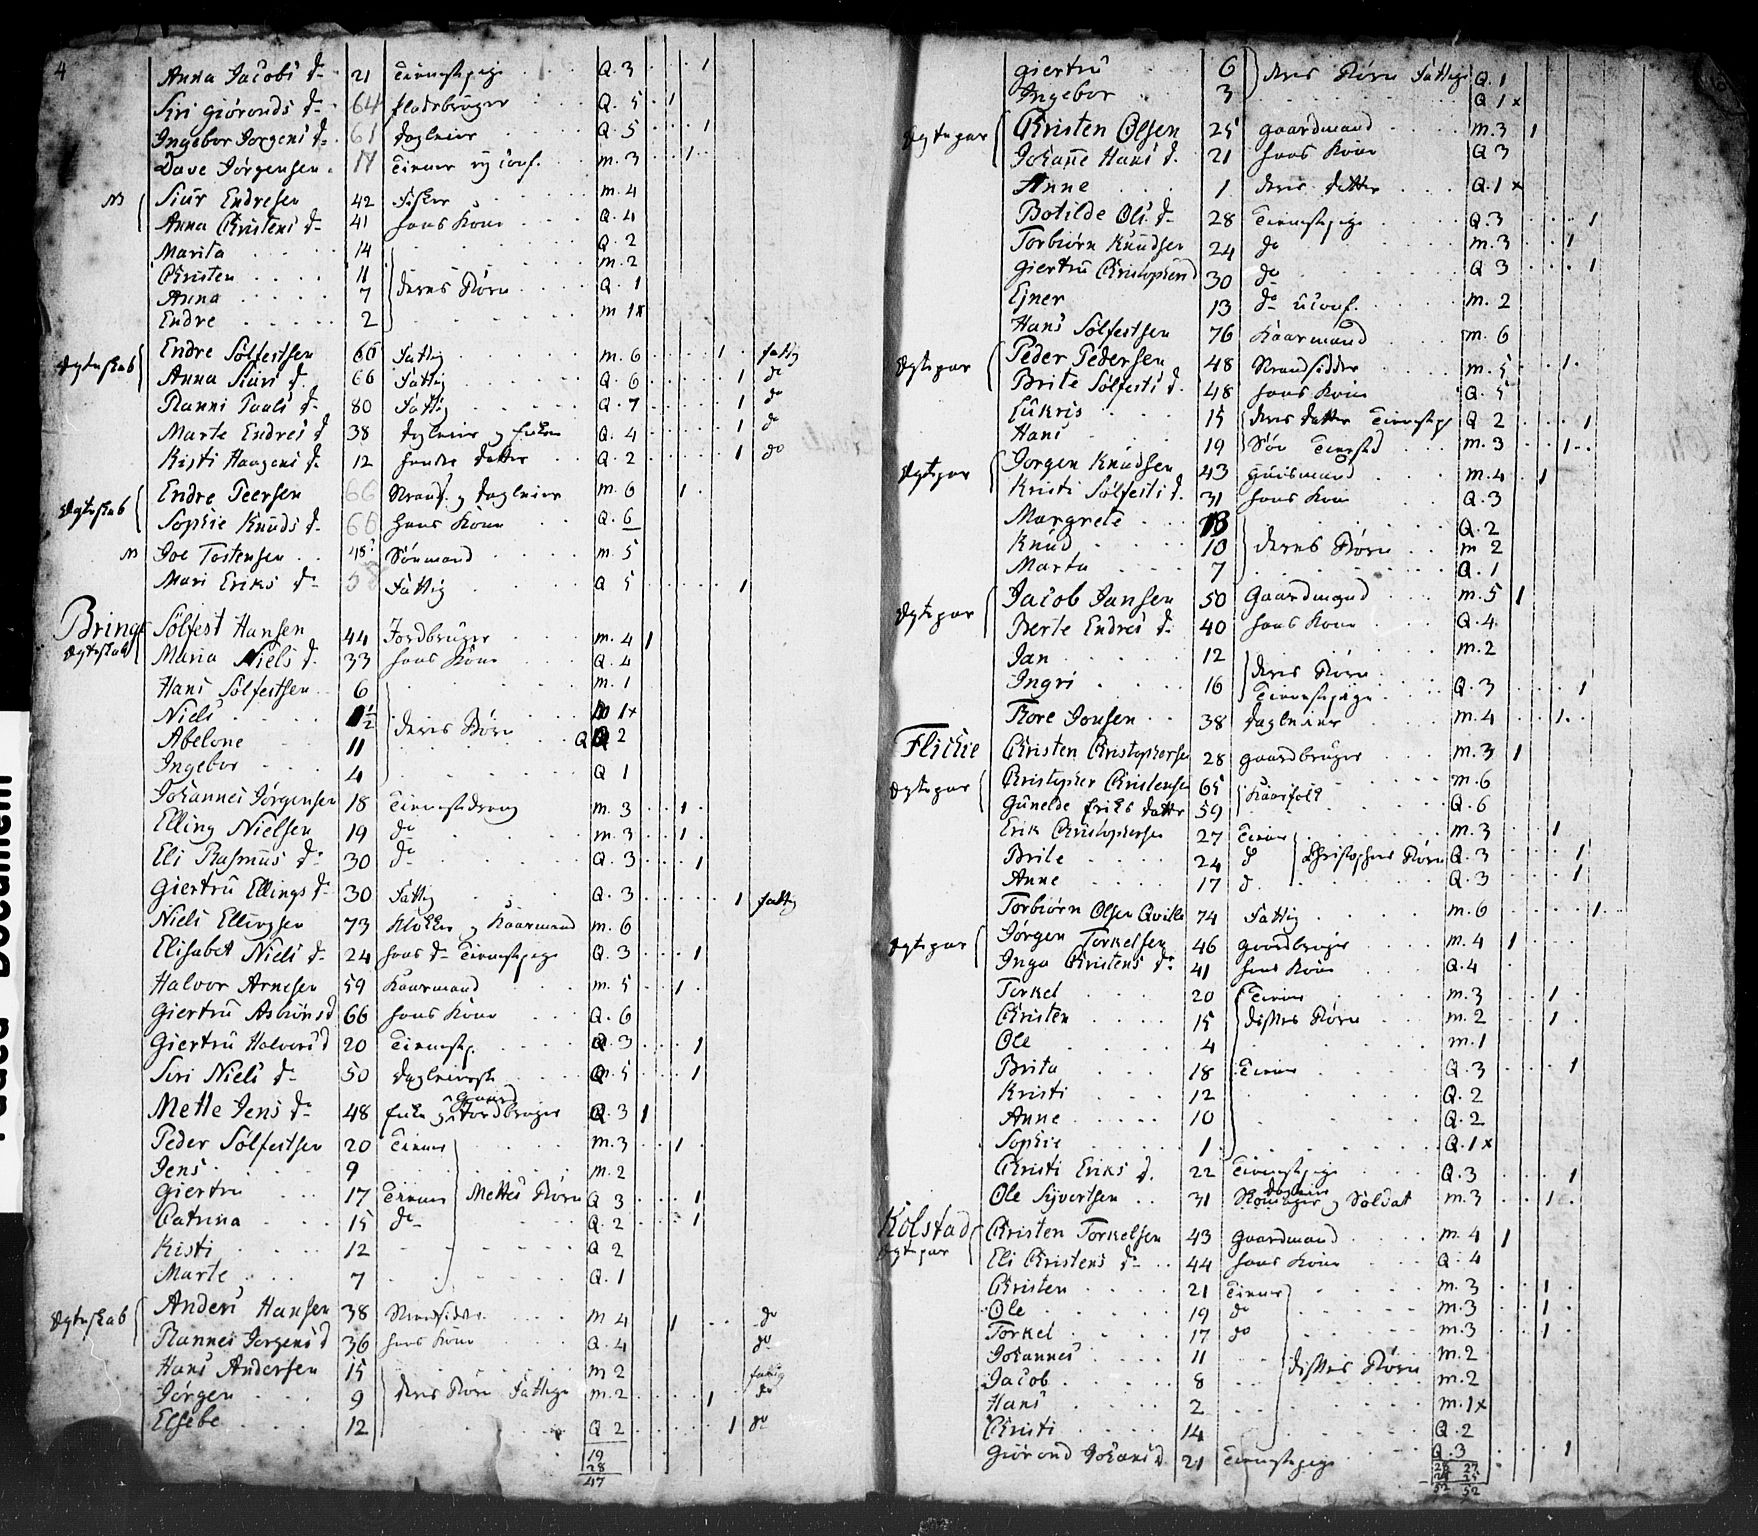 4
Anna Jacobs d. 21 Tienestpige Q. 3 1
Siri Giøronds d. 64 Q. 5 1
Ingebor Jørgens d. 61 Dagleier Q. 5 1
Dave Jørgensen 17 Tiener og conf. m. 3 1
M Siur Endresen 42 Fisker m. 4
Anna Christens d. 41 hans Kone Q. 4
Marita 14 Q. 2
Christen 11 m. 2
Anna 7 deres Børn Q. 1
Endre 2 m 1x
Ægteskab Endre Sølfestsen 66 Fattig m. 6 1 fattig
Anna Siurs d. 66 Fattig Q. 6 1 do
Ranni Poals d. 80 Fattig Q. 7 1 do
Marte Endres d 38 Dagleier og Enken Q. 4 1 do
Kisti Haagens d. 12 hendes datter Q. 2 1 do
Ægteskab Endre Peersen 66 Strands. og Dagleier m. 6 1
Sophie Knuds d. 66 hans Kone Q. 6
M Joe Tostensen 48 m. 5
Mari Eriks d. 58 Fattig Q 5 1
Bringe Sølfest Hansen 44 Jordbruger m. 4 1
Ægteskab Maria Niels d. 33 hans Kone Q. 4
Hans Sølfestsen 6 m. 1
Niels 1/2 deres Børn m 1x
Abelone 11 Q 2
Ingebor 4 Q 1
Johannes Jørgensen 18 Tienestedreng m. 3 1
Elling Nielsen 19 do m. 3 1
Eli Rasmus d. 30 do Q. 3 1
Giertru Ellings d. 30 Fattig Q. 3 1 fattig
Niels Ellingsen 73 Klokker og Kaarmand m. 6
Elisabet Niels d. 24 hans d. Tienestpige Q. 3 1
Halvor Arnesen 59 Kaarmand m. 5 1
Giertru Asbiørns d 66 hans Kone Q. 6
Giertru Halvors d 20 Tienestp. Q. 3 1
Siri Niels d. 50 Q. 5 1
Mette Jens d. 48 Enke og Jordbruger Q. 3 1
Peder Sølfestsen 20 Tiener m. 3 1
Jens 9 m. 2
Giertru 17 Tiener Mettes Børn Q 3 1
Catrina 15 do Q. 2 1
Kisti 12 Q 2
Marte 7 Q. 1
Ægteskab Anders Hansen 38 Strandsidder m 4 1 do
Rannei Jørgens d 36 hans Kone Q. 4 do
Hans Andersen 15 m 2 fattig
Jørgen 9 deres Børn Fattige m. 2 1 do
Elsebe 12 Q 2 1 do
19
28
47
Giertru 6 deres Børn Fattige Q. 1
Ingebor 3 Q 1x
Ægtepar Christen Olsen 25 Gaardmand m. 3 1
Johanne Hans d. 21 hans Kone Q 3
Anne 1 deres datter Q. 1x
Botilde Ols d. 28 Tienestpige Q. 3 1
Torbiørn Knudsen 24 do m. 3 1
Giertru Christophers d 30 do Q 3 1
Ejner 13 do uconf. m. 2
Hans Sølfestsen 76 Kaarmand m. 6
Ægtepar Peder Pedersen 48 Strandsidder m. 5 1
Brite Sølfests d. 48 hans Kone Q. 5
Lukris 15 deres datter Tienestp Q 2 1
Hans 19 Søn m. 3 1
Ægtepar Jørgen Knudsen 43 Huusmand m. 4 1
Kristi Sølfests d. 31 hans Kone Q. 3
Margrete 13 Q. 2
Knud 10 deres Børn m 2
Marta 7 Q. 1
Ægtepar Jacob Jansen 50 Gaardmand m. 5 1
Berte Endres d. 40 hans Kone Q. 4
Jan 12 deres Børn m. 2
Ingri 16 Tienestpige Q. 3 1
Tore Jonsen 38 Dagleier m. 4 1
Flickie Christen Christophersen 28 Gaardbruger m. 3 1
Ægtepar Christopher Christensen 65 m. 6
Gunelde Eriks datter 59 Kaarfolk Q. 6
Erik Christophersen 27 Tiener m. 3 1
Brite 24 d Christophers Børn Q. 3 1
Anne 17 d. Q. 3 1
Torbiørn Olsen Qville 74 Fattig m. 6 1
Ægtepar Jørgen Torkelsen 46 Gaardbruger m. 4 1
Inga Christens d. 41 hans Kone Q. 4
Torkel 20 Tiener m. 3 1
Christen 15 disses Børn m. 2 1
Ole 4 m. 1
Brita 18 Tiener Q. 3 1
Kristi 12 Q. 2
Anne 10 Q. 2
Sophie 1 Q. 1x
Christi Eriks d. 22 Tienestpige Q. 3 1
Ole Sjvertsen 31 Dagleier og Soldat m. 3 1
Kolstad Christen Torkelsen 43 Gaardmand m. 4 1
Ægtepar Eli Christens d. 44 hans Kone Q. 4
Christen 21 Tiener m. 3 1
Ole 19 do m. 3 1
Torkel 17 do m. 3 1
Johannes 11 m. 2
Jacob 8 disses Børn m. 2
Hans 2 m. 1x
Christi 14 Q. 2
Giørond Johans d. 21 Tienestpige Q. 3 1
27
25
52 52